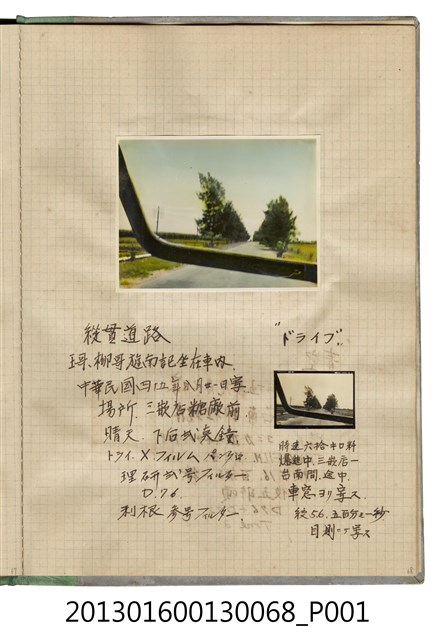 縱貫道路
珥哥、柳哥旅南記坐在車内、
中華民國四五年八月廿一日寫
場所 三崁店糖廠前
晴天、下后
トライ.Xフィルム パンクロ
理研 弐号フィルター
D.76.
利根 参号フィルター
"ドライブ"
時速六拾キロ軒
爆進中、三崁店ー
台南間、途中、
車窓ヨリ寫ス、
絞5.6.五百分之一秒
目測ニテ寫ス
201301600130068_P001